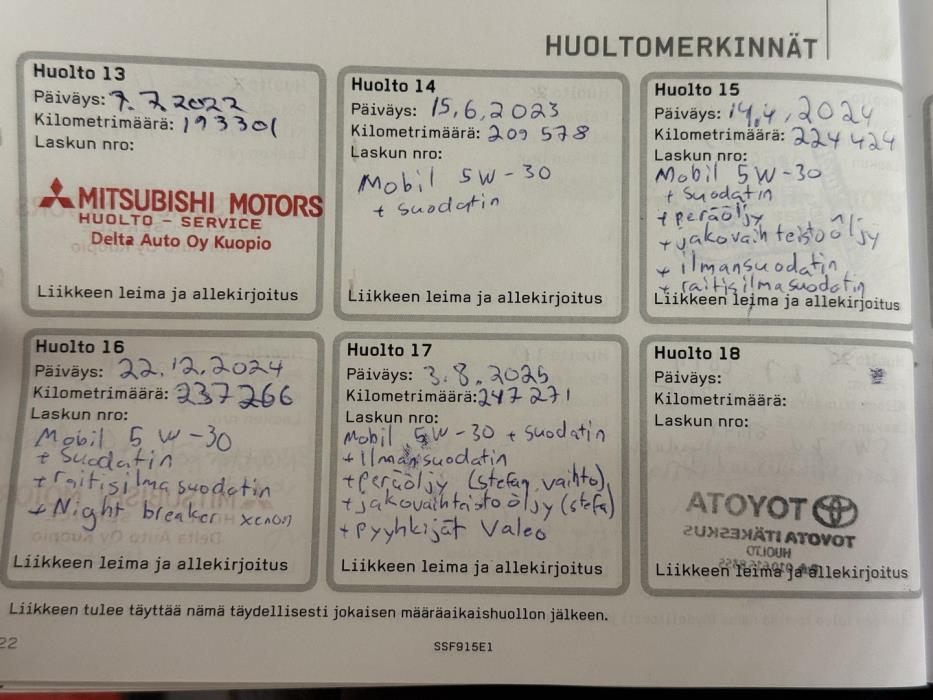 HUOLTOMERKINNÄT
Huolto 13
Päiväys: 7.7.2022
Kilometrimäärä: 193301
Laskun nro:
MITSUBISHI MOTORS
HUOLTO - SERVICE
Delta Auto Oy Kuopio
Liikkeen leima ja allekirjoitus
Huolto 14
Päiväys: 15.6.2023
Kilometrimäärä: 209 578
Laskun nro:
Mobil 5W-30
+ suodatin
Liikkeen leima ja allekirjoitus
Huolto 15
Päiväys: 14.4.2024
Kilometrimäärä: 224 424
Laskun nro:
Mobil 5W-30
+ suodatin
+ peräöljy
+ jakovaihteistoöljy
+ ilmansuodatin
+ raitisilmasuodatin
Liikkeen leima ja allekirjoitus
Huolto 16
Päiväys: 22.12.2024
Kilometrimäärä: 237266
Laskun nro:
Mobil 5W-30
+ suodatin
+ raitisilmasuodatin
+ Night breaker xenon
Liikkeen leima ja allekirjoitus
Huolto 17
Päiväys: 3.8.2025
Kilometrimäärä: 247 271
Laskun nro:
Mobil 5W-30 + suodatin
+ Ilmansuodatin
+ peräöljy (stefan vaihto)
+ jakovaihteistoöljy (stefa)
+ pyyhkijät Valeo
Liikkeen leima ja allekirjoitus
Huolto 18
Päiväys:
Kilometrimäärä:
Laskun nro:
TOYOTA
TOYOTA ITÄKESKUS
HUOLTO
Liikkeen leima ja allekirjoitus
Liikkeen tulee täyttää nämä täydellisesti jokaisen määräaikaishuollon jälkeen.
22
SSF915E1